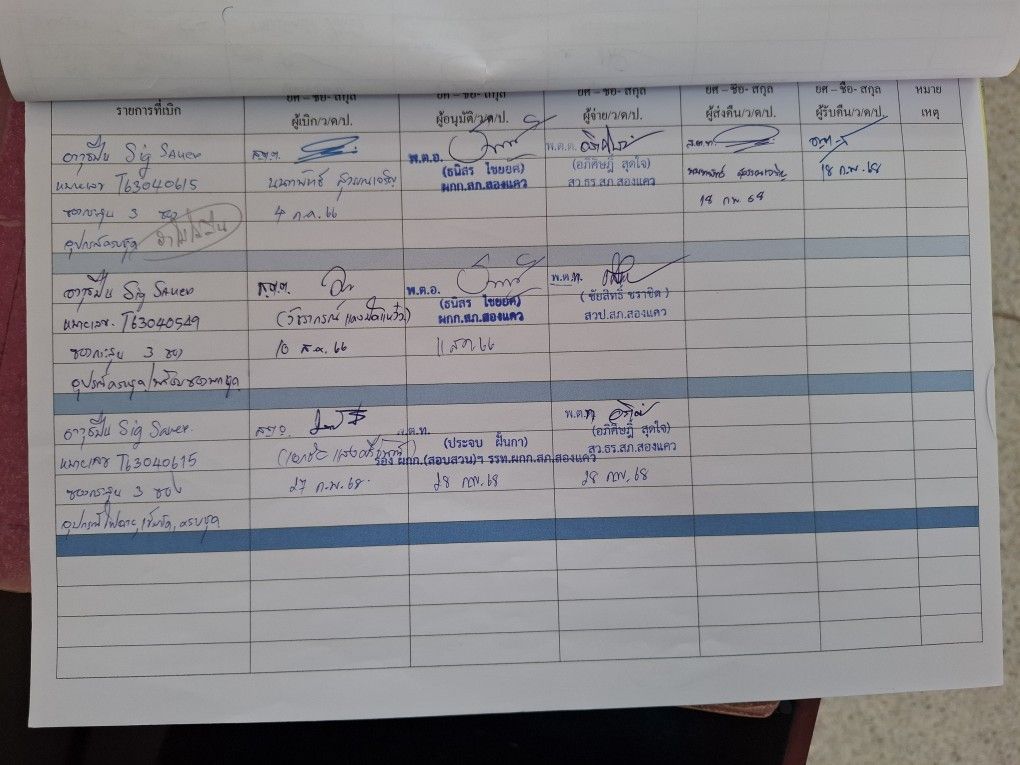 รายการที่เบิก ยศ – ชื่อ- สกุล ยศ – ชื่อ- สกุล ยศ – ชื่อ- สกุล ยศ – ชื่อ- สกุล ยศ – ชื่อ- สกุล หมาย
ผู้เบิก/ว/ด/ป. ผู้อนุมัติ/ว/ด/ป. ผู้จ่าย/ว/ด/ป. ผู้ส่งคืน/ว/ด/ป. ผู้รับคืน/ว/ด/ป. เหตุ
อาวุธปืน Sig Sauer ส.ต.ต. พ.ต.อ. พ.ต.ต. ส.ต.ท.
(ธนิสร ไชยยศ) (อภิศิษฎิ์ สุดใจ)
หมายเลข T63040615 ผกก.สภ.สองแคว สว.ธร.สภ.สองแคว 18 ก.พ. 68
ซองกระสุน 3 ซอง 4 ก.ค. 66 18 กพ 68
อุปกรณ์ครบชุด
อาวุธปืน Sig Sauer ส.ต.ต. พ.ต.อ. พ.ต.ท.
(ธนิสร ไชยยศ) (ชัยสิทธิ์ ชราชิต)
หมายเลข T63040549 ผกก.สภ.สองแคว สวป.สภ.สองแคว
ซองกระสุน 3 ซอง 10 ส.ค. 66 11 สค 66
อุปกรณ์ครบชุด
อาวุธปืน Sig Sauer พ.ต.ท. พ.ต.ท.
(ประจอบ ฝั้นกา) (อภิศิษฎิ์ สุดใจ)
หมายเลข T63040615 รอง ผกก.(สอบสวน)ฯ รรท.ผกก.สภ.สองแคว สว.ธร.สภ.สองแคว
ซองกระสุน 3 ซอง 27 ก.พ. 68 28 กพ. 68 28 กพ. 68
อุปกรณ์ไฟฉาย, เข็มขัด, ครบชุด